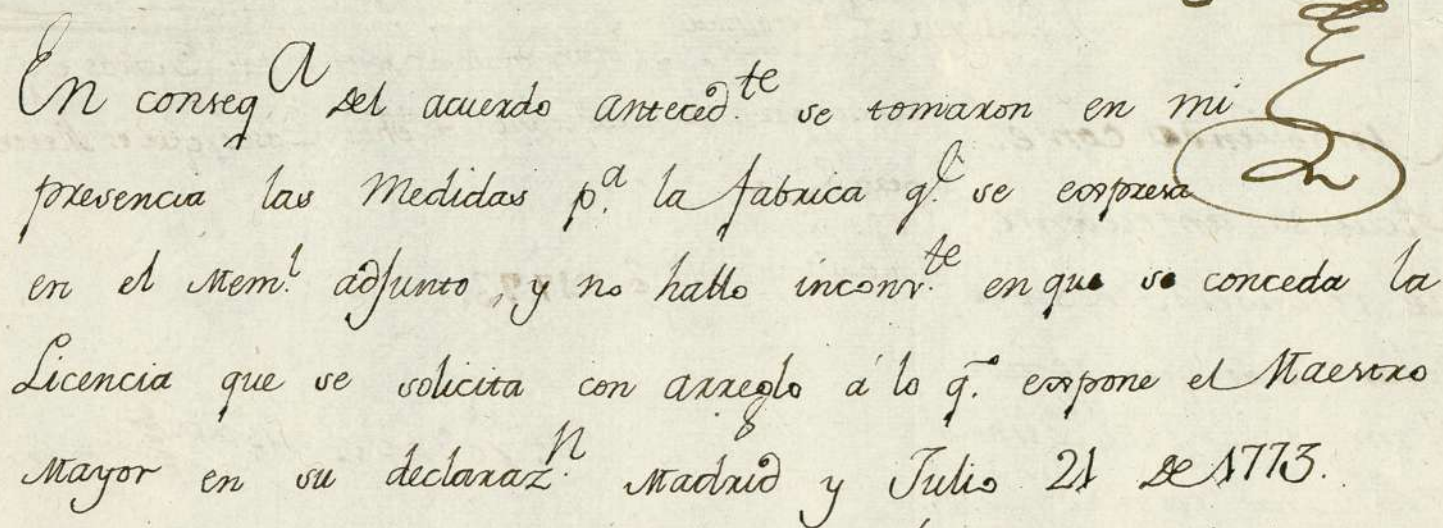 En conseq.ª del acuerdo anteced.te se tomaron en mi
presencia las Medidas p.ª la fabrica q.e se expresa
en el Mem.l adjunto, y no hallo inconv.te en que se conceda la
Licencia que se solicita con arreglo á lo q.e expone el Maestro
Mayor en su declaraz.n Madrid y Julio 21 de 1773.